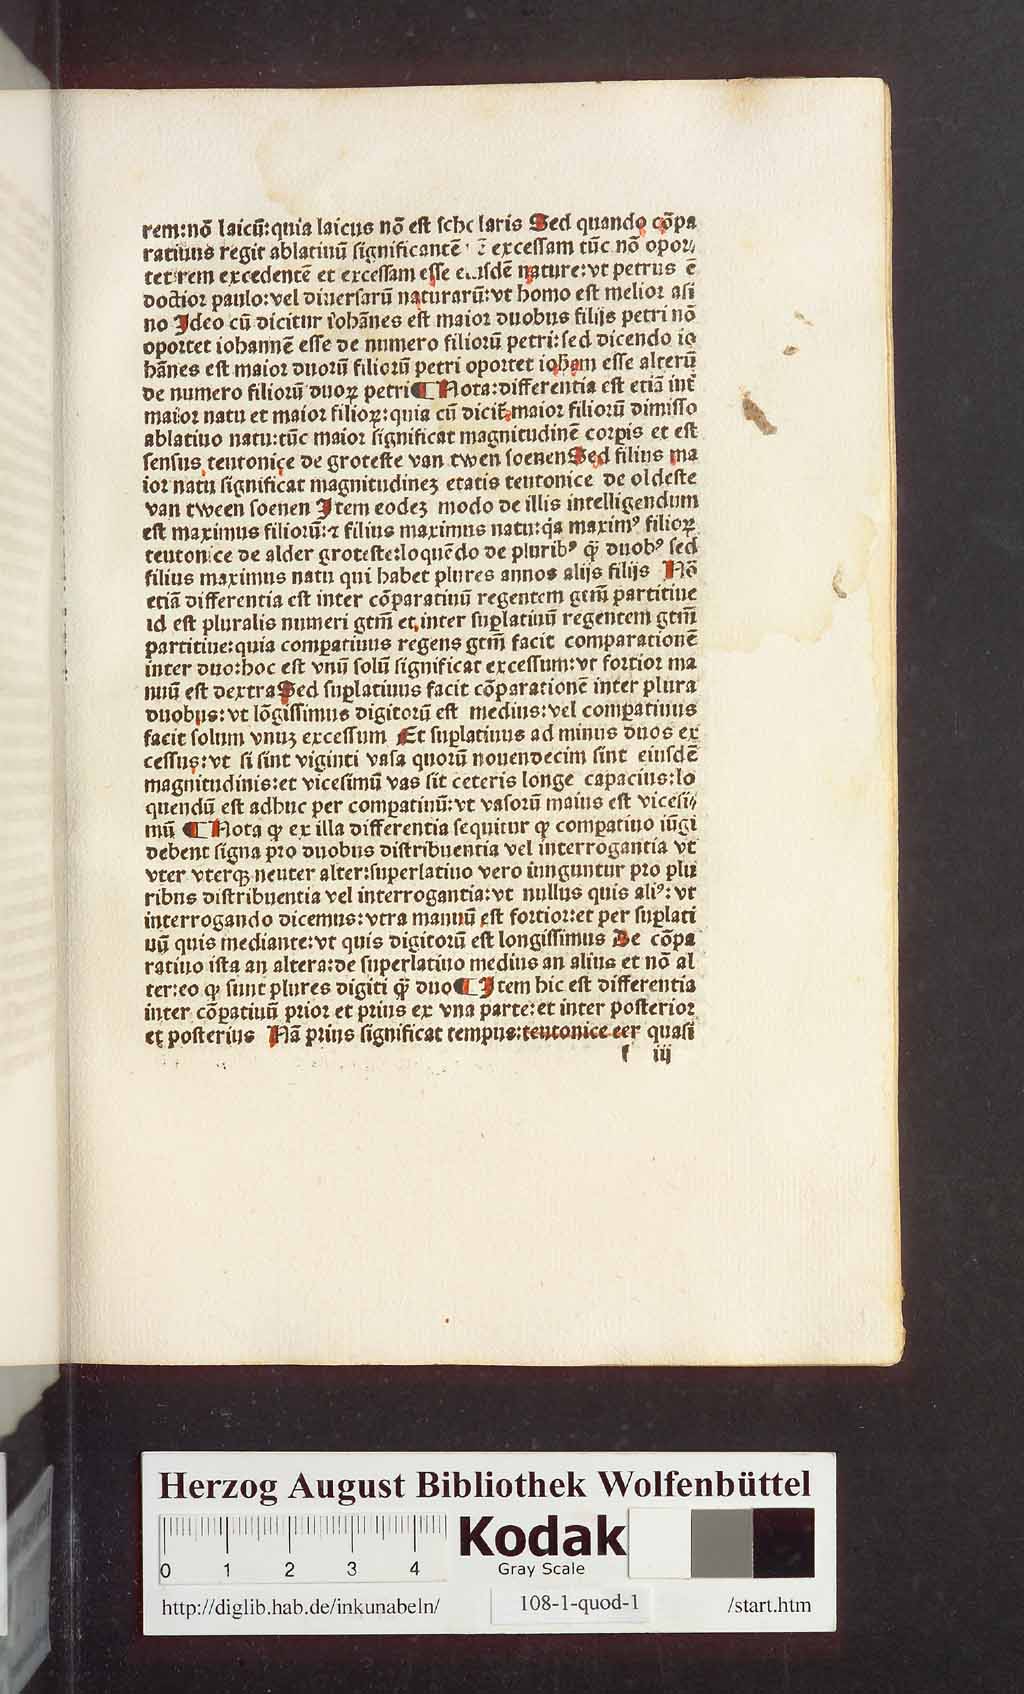 rem:nō laicū:quia laicus nō est scholaris Sed quando cōpa
ratiuus regit ablatiuū significantē ē excessam tūc nō opor
tet rem excedentē et excessam esse eiusdē nature:vt petrus ē
doctior paulo:vel diuersarū naturarū:vt homo est melior asi
no Ideo cū dicitur iohānes est maior duobus filijs petri nō
oportet iohannē esse de numero filiorū petri:sed dicendo io
hānes est maior duorū filiorū petri oportet iohem esse alterū
de numero filiorū duoꝝ petri ¶ Nota:differentia est etiā int̄
maior natu et maior filioꝝ:quia cū dicit̄ maior filiorū dimisso
ablatiuo natu:tūc maior significat magnitudinē corꝑis et est
sensus teutonice de groteste van twen soenen Sed filius ma
ior natu significat magnitudineꝫ etatis teutonice de oldeste
van tween soenen Item eodeꝫ modo de illis intelligendum
est maximus filiorū:⁊ filius maximus natu:q̇a maximꝰ filioꝝ
teutonice de alder groteste:loquēdo de pluribꝰ q̄ȝ duobꝰ sed
filius maximus natu qui habet plures annos alijs filijs Nō
etiā differentia est inter cōparatiuū regentem gtm̄ partitiue
id est pluralis numeri gtm̄ et inter suꝑlatiuū regentem gtm̄
partitiue:quia comꝑatiuus regens gtm̄ facit comparationē
inter duo:hoc est vnū solū significat excessum:vt fortior ma
nuū est dextra Sed suꝑlatiuus facit cōparationē inter plura
duobus:vt lōgissimus digitorū est medius:vel comꝑatiuus
facit solum vnuꝫ excessum Et suꝑlatiuus ad minus duos ex
cessus:vt si sint viginti vasa quorū nouendecim sint eiusdē
magnitudinis:et vicesimū vas sit ceteris longe capacius:lo
quendū est adhuc per comꝑatiuū:vt vasorū maius est vicesi
mū ¶ Nota ꝙ ex illa differentia sequitur ꝙ comꝑatiuo iūgi
debent signa pro duobus distribuentia vel interrogantia vt
vter vterqꝫ neuter alter:superlatiuo vero iunguntur pro plu
ribus distribuentia vel interrogantia:vt nullus quis aliꝰ:vt
interrogando dicemus:vtra manuū est fortior:et per suꝑlati
uū quis mediante:vt quis digitorū est longissimus De cōpa
ratiuo ista an altera:de superlatiuo medius an alius et nō al
ter:eo ꝙ sunt plures digiti q̄ȝ duo ¶ Item hic est differentia
inter cōꝑatiuū prior et prius ex vna parte:et inter posterior
et posterius Nā prius significat tempus:teutonice eer quasi
f iij
Herzog August Bibliothek Wolfenbüttel
0 1 2 3 4
Kodak
Gray Scale
http://diglib.hab.de/inkunabeln/ 108-1-quod-1 /start.htm